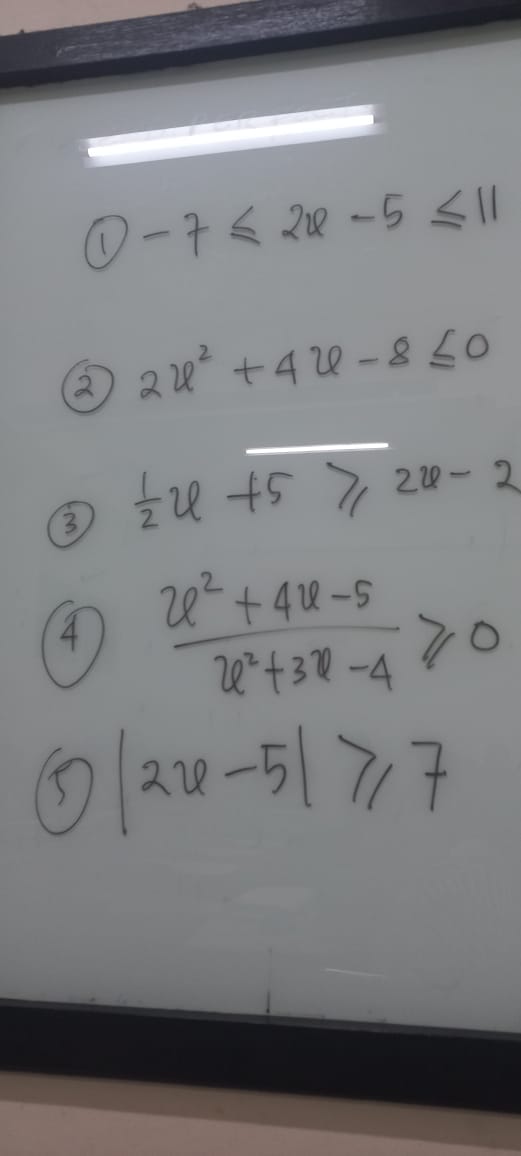 ① -7 ≤ 2x - 5 ≤ 11
② 2x² + 4x - 8 ≤ 0
③ ½x + 5 ≥ 2x - 2
④ (x² + 4x - 5)/(x² + 3x - 4) ≥ 0
⑤ |2x - 5| ≥ 7